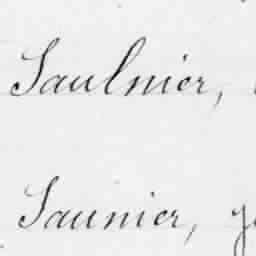 Saulnier,
Saunier,